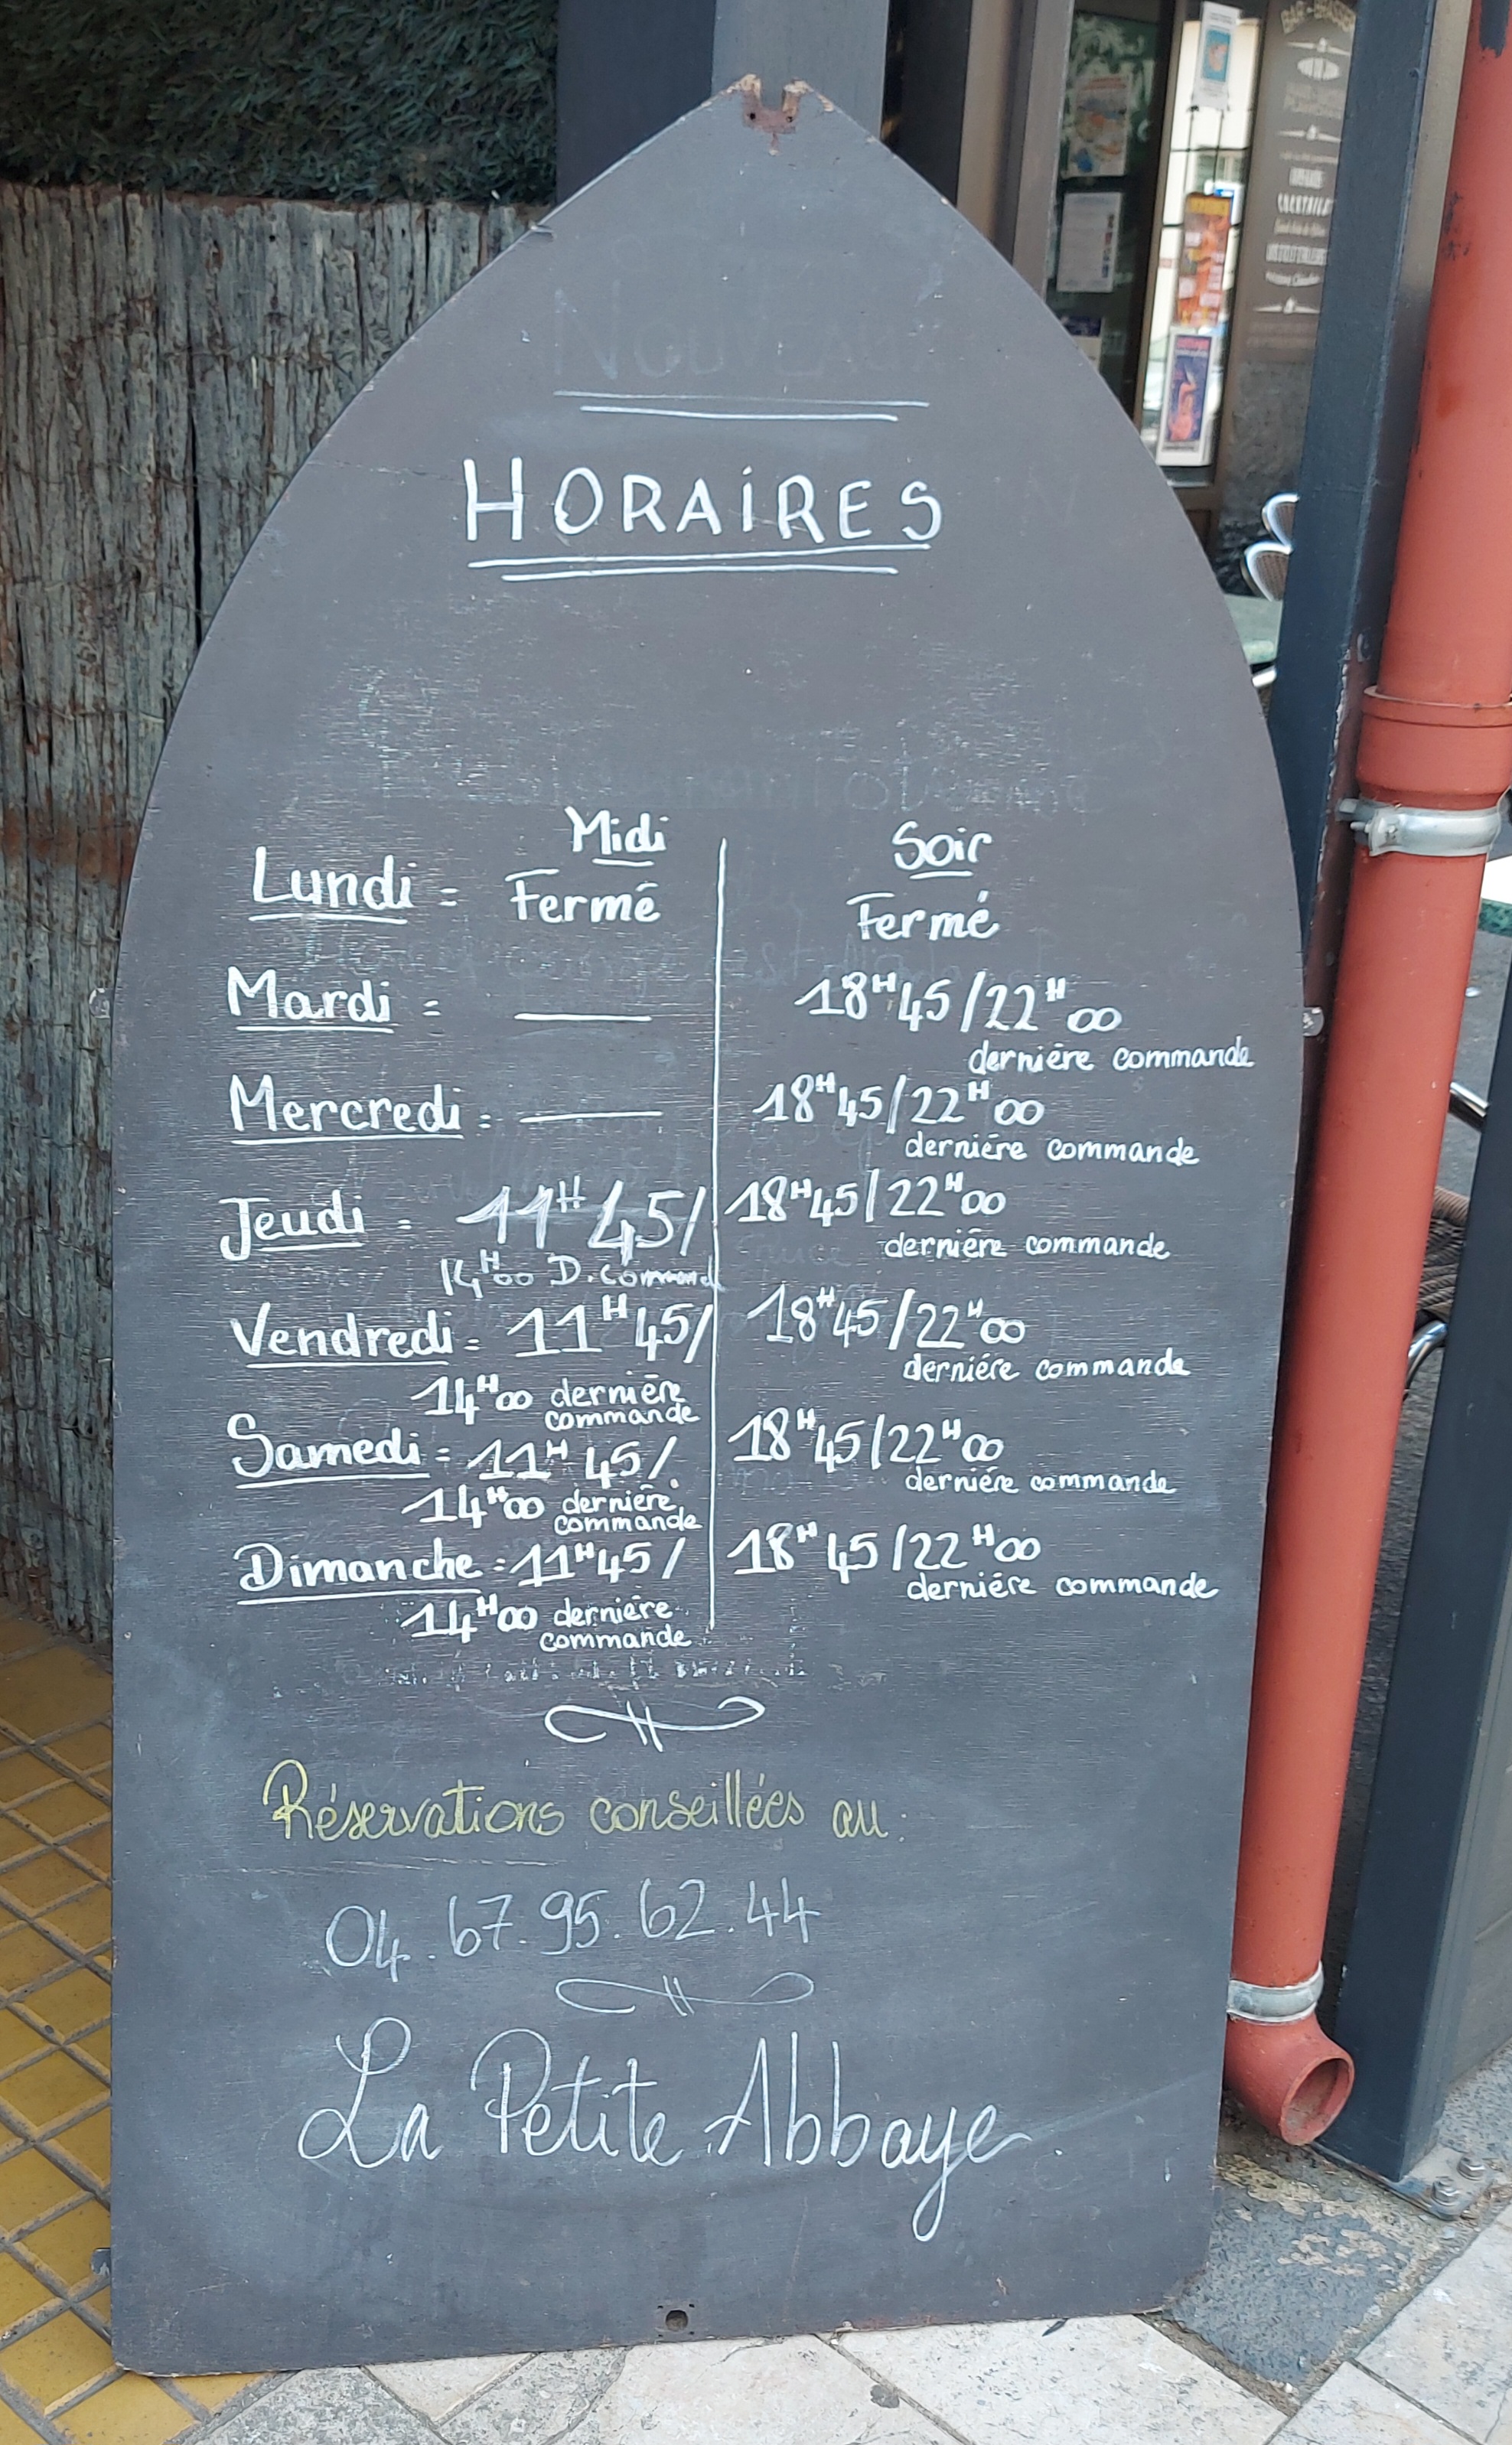 BAR - BRASSERIE
COCKTAILS
HORAIRES
Midi Soir
Lundi = Fermé Fermé
Mardi = — 18H45/22H00
dernière commande
Mercredi = — 18H45/22H00
dernière commande
Jeudi = 11H45/ 18H45/22H00
14H00 D. Command dernière commande
Vendredi = 11H45/ 18H45/22H00
14H00 dernière dernière commande
commande
Samedi = 11H45/. 18H45/22H00
14H00 dernière dernière commande
commande
Dimanche = 11H45/ 18H45/22H00
14H00 dernière dernière commande
commande
Réservations conseillées au :
04.67.95.62.44
La Petite Abbaye.